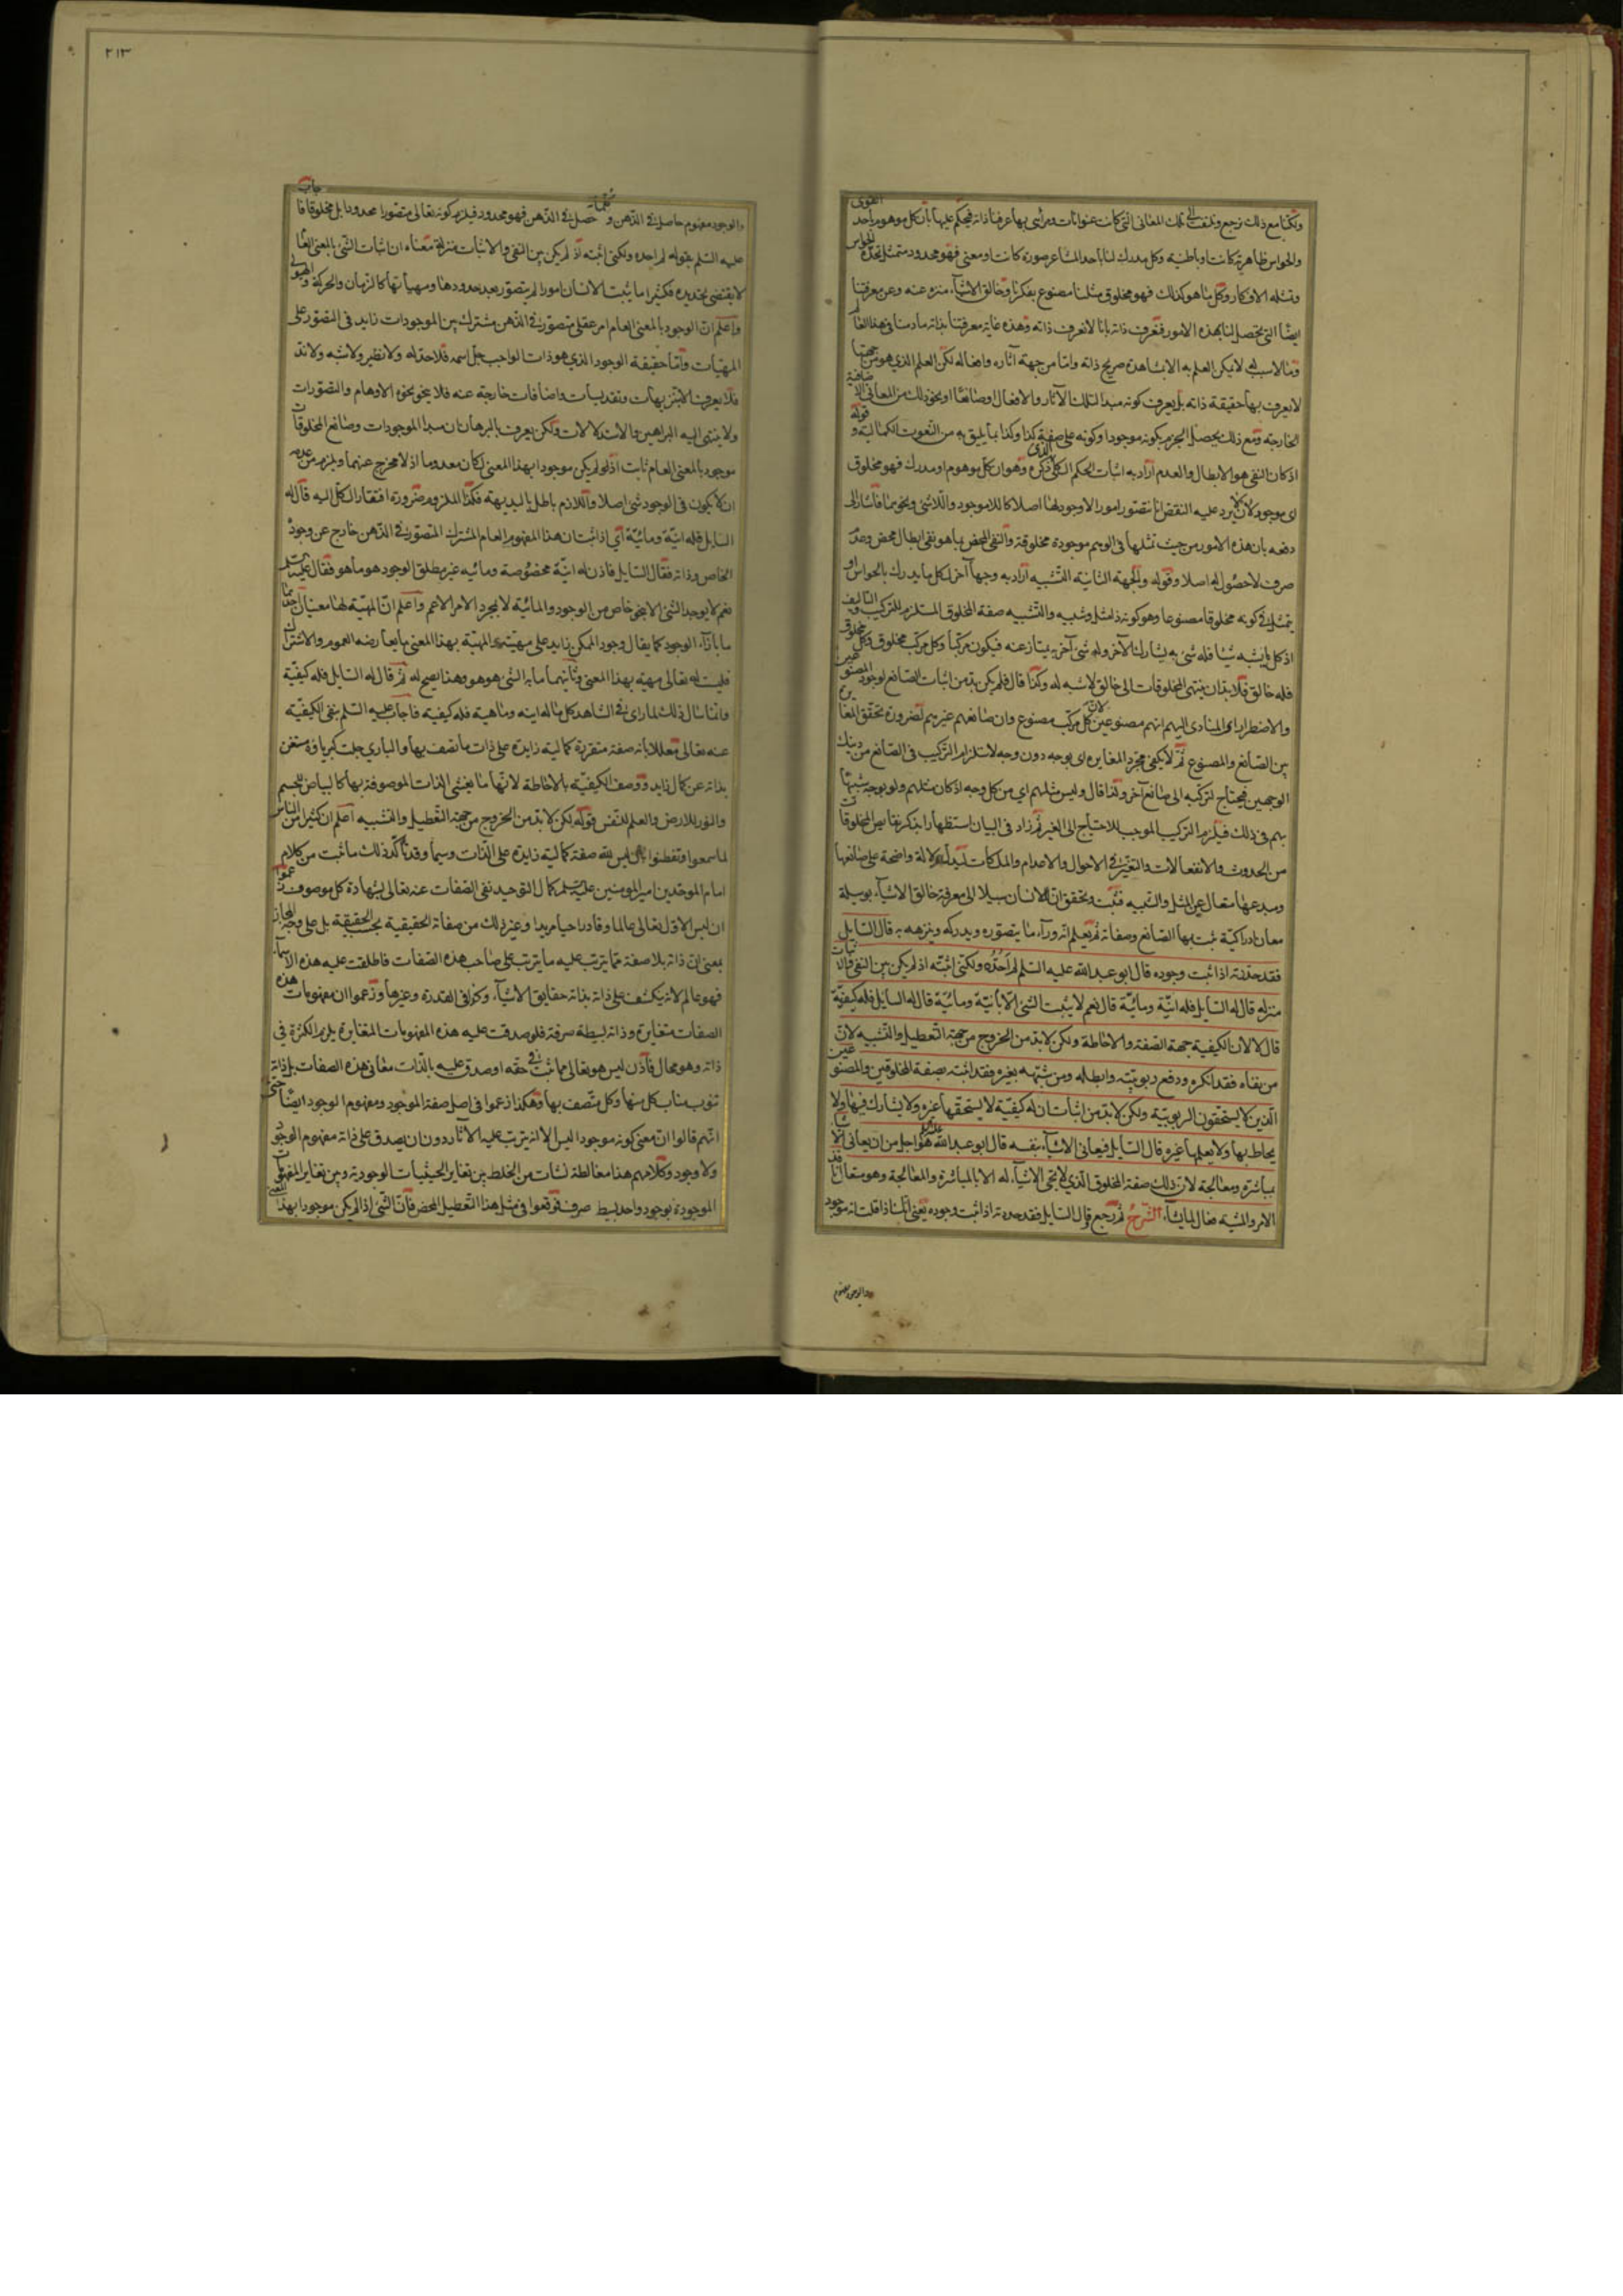 ولكنا مع ذلك نرجع ونلتفت الى تلك المعانى التى كانت عنوانات ومرائى بها عرفنا ذاته فيحكم عليها بان كل موهوم باحد القوى
والحواس ظاهرية كانت او باطنية وكل مدرك لنا باحد المشاعر صورة كانت او معنى فهو محدود متمثل تحده الحواس
وتمثله الافكار وكل ما هو كذلك فهو مخلوق مثلنا مصنوع بفكرنا وخالق الاشيآء منزه عنه وعن معرفتنا
ايضا التى تحصل لنا بهذه الامور فنعرف ذاته بانا لا نعرف ذاته وهذه غاية معرفتنا بذاته ما دمنا فى هذا العالم
وما لا سبب له لا يمكن العلم به الا بمشاهدة صريح ذاته واما من جهة آثاره وافعاله لكن العلم الذى هو من جهتها
لا يعرف بها حقيقة ذاته بل يعرف كونه مبدا لتلك الآثار والافعال او صانعا او نحو ذلك من المعانى الاضافية
الخارجة ومع ذلك يحصل الجزم بكونه موجودا وكونه على صفة كذا وكذا مما يليق به من النعوت الكمالية وقوله
اذ كان النفى هو الابطال والعدم اراد به اثبات الحكم الكلى الذى ذكره وهو ان كل موهوم او مدرك فهو مخلوق
اى موجود لان لا يرد عليه النقض انا نتصور امورا لا وجود لها اصلا كاللاموجود واللاشئ ونحوهما فاشار الى
دفعه بان هذه الامور من حيث تمثلها فى الوهم موجودة مخلوقة والنفى المحض بما هو نفى ابطال محض وعدم
صرف لا حصول له اصلا وقوله والجهة الثانية التشبيه اراد به وجها آخر لكل ما يدرك بالحواس او
يتمثل فى كونه مخلوقا مصنوعا وهو كونه ذا مثل وشبيه والتشبيه صفة المخلوق المستلزم للتركيب والتاليف
اذ كل ما يشبه شيئا فله شئ به يشارك الآخر وله شئ آخر به يمتاز عنه فيكون مركبا وكل مركب مخلوق وكل مخلوق
فله خالق فلا بد ان ينتهى المخلوقات الى خالق لا شبه له وكذا قال فلم يكن بد من اثبات الصانع لوجود المصنوعين
والاضطرار اى المنادى اليهم انهم مصنوعين لان كل مركب مصنوع وان صانعهم غيرهم لضرورة تحقق المغايرة
بين الصانع والمصنوع ثم لا يكفى مجرد المغايرة اى بوجه دون وجه لاستلزام التركيب فى الصانع من ذينك
الوجهين فيحتاج لتركبه الى صانع آخر ولذا قال وليس مثلهم اى من كل وجه اذ كان مثلهم ولو بوجه شبيها
بهم فى ذلك فيلزم التركيب الموجب للاحتياج الى الغير ثم زاد فى البيان استظهارا بذكر نقايص المخلوقات
من الحدوث والانفعالات والتغير فى الاحوال والاعدام والملكات ليدل دلالة واضحة على صانعها
ومبدعها متعال عن المثل والشبيه فثبت وتحقق ان للانسان سبيلا الى معرفة خالق الاشيآء بوسيلة
معان ادراكية يثبت بها الصانع وصفاته ثم يعلم انه ورآء ما يتصوره ويدركه وينزهه به قال السايل
فقد حددته اذ اثبت وجوده قال ابو عبد الله عليه السلم لم احده ولكنى اثبته اذ لم يكن بين النفى والاثبات
منزلة قال له السايل فله انية ومائية قال نعم لا يثبت الشئ الا بانية ومائية قال له السايل فله كيفية
قال لا لان الكيفية جهة الصفة والاحاطة ولكن لا بد من الخروج من جهة التعطيل والتشبيه لان
من نفاه فقد انكره ودفع ربوبيته وابطله ومن شبهه بغيره فقد اثبته بصفة المخلوقين والمصنوعين
الذين لا يستحقون الربوبية ولكن لا بد من اثبات ان له كيفية لا يستحقها غيره ولا يشارك فيها ولا
يحاط بها ولا يعلمها غيره قال السايل فيعانى الاشيآء بنفسه قال ابو عبد الله هو اجل من ان يعانى الاشيآء
بمباشرة ومعالجة لان ذلك صفة المخلوق الذى لا تجئ الاشيآء له الا بالمباشرة والمعالجة وهو متعال نافذ
الارادة والمشية فعال لما يشآء الشرح ثم رجع قال السايل فقد حددته اذ اثبت وجوده يعنى انك اذا قلت انه موجود
والوجود مفهوم
٢١٣
والوجود مفهوم حاصل فى الذهن وكلما حصل فى الذهن فهو محدود فيلزم كونه تعالى متصورا محدودا بل مخلوقا فاجاب
عليه السلم بقوله لم احده ولكنى اثبته اذ لم يكن بين النفى والاثبات منزلة معناه ان اثبات الشئ بالمعنى العام
لا يقتضى تحديده فكثيرا ما يثبت الانسان امورا لم يتصور بعد حدودها ومهياتها كالزمان والحركة والهيولى
واعلم ان الوجود بالمعنى العام امر عقلى متصور فى الذهن مشترك بين الموجودات زايد فى التصور على
المهيات واما حقيقة الوجود الذى هو ذات الواجب جل اسمه فلا حد له ولا نظير ولا شبه ولا ند
فلا يعرف الا بتنزيهات وتقديسات واضافات خارجة عنه فلا ينحو نحوه الاوهام والتصورات
ولا ينتهى اليه البراهين والاستدلالات ولكن يعرف بالبرهان ان مبدا الموجودات وصانع المخلوقات
موجود بالمعنى العام ثابت اذ لو لم يكن موجودا بهذا المعنى لكان معدوما اذ لا مخرج عنهما ويلزم من عدمه
ان لا يكون فى الوجود شئ اصلا واللازم باطل بالبديهة فكذا الملزوم ضرورة افتقار الكل اليه قال له
السايل فله انية ومائية اى اذا ثبت ان هذا المفهوم العام المشترك المتصور فى الذهن خارج عن وجوده
الخاص وذاته فقال السايل فاذن له انية مخصوصة ومائية غير مطلق الوجود هو ما هو فقال عليه السلم
نعم لا يوجد الشئ الا بنحو خاص من الوجود والمائية لا بمجرد الامر الاعم واعلم ان المهية لها معنيان احدهما
ما بازآء الوجود كما يقال وجود الممكن زايد على مهيته والمهية بهذا المعنى ما يعارضه العموم والاشتراك
فليست له تعالى مهية بهذا المعنى وثانيهما ما به الشئ هو هو وهذا يصح له ثم قال له السايل فله كيفية
وانما سال ذلك لما راى فى الشاهد كل ماله انية وماهية فله كيفية فاجاب عليه السلم بنفى الكيفية
عنه تعالى معللا بانه صفة متقررة كمالية زايدة على ذات ما تتصف بها والبارى جلت كبرياؤه مستغن
بذاته عن كمال زايد ووصف الكيفية بالاحاطة لانها ما يغشى الذات الموصوفة بها كالبياض للجسم
والنور للارض والعلم للنفس قوله لكن لا بد من الخروج من جهة التعطيل والتشبيه اعلم ان كثيرا من الناس
لما سمعوا وتفطنوا بان ليس لله صفة كمالية زايدة على الذات وسيما وقد تاكد ذلك ما ثبت من كلام
امام الموحدين امير المومنين عليه السلم كمال التوحيد نفى الصفات عنه تعالى لشهادة كل موصوف زعموا
ان ليس الاول تعالى عالما وقادرا حيا مريدا وغير ذلك من صفاته الحقيقية بحسب الحقيقة بل على وجه المجاز
بمعنى ان ذاته بلا صفة مما يترتب عليه ما يترتب على صاحب هذه الصفات فاطلقت عليه هذه الاسمآء
فهو عالم لانه ينكشف على ذاته بذاته حقايق الاشيآء وكذا فى القدرة وغيرها وزعموا ان مفهومات هذه
الصفات متغايرة وذاته بسيطة صرفة فلو صدقت عليه هذه المفهومات المتغايرة يلزم الكثرة فى
ذاته وهو محال فاذن ليس هو تعالى مما ثبت فى حقه او صدق عليه بالذات معانى هذه الصفات بل ذاته
تنوب مناب كل منها وكل متصف بها وهكذا زعموا فى اصل صفة الموجود ومفهوم الوجود ايضا حتى
انهم قالوا ان معنى كونه موجودا ليس الا انه يترتب عليه الآثار دون ان يصدق على ذاته مفهوم الوجود
ولا وجود وكلامهم هذا مغالطة نشات من الخلط بين تغاير الحيثيات الوجودية وبين تغاير المفهومات
الموجودة بوجود واحد بسيط صرف فوقعوا فى مثل هذا التعطيل المحض فان الشئ اذا لم يكن موجودا بهذا المعنى